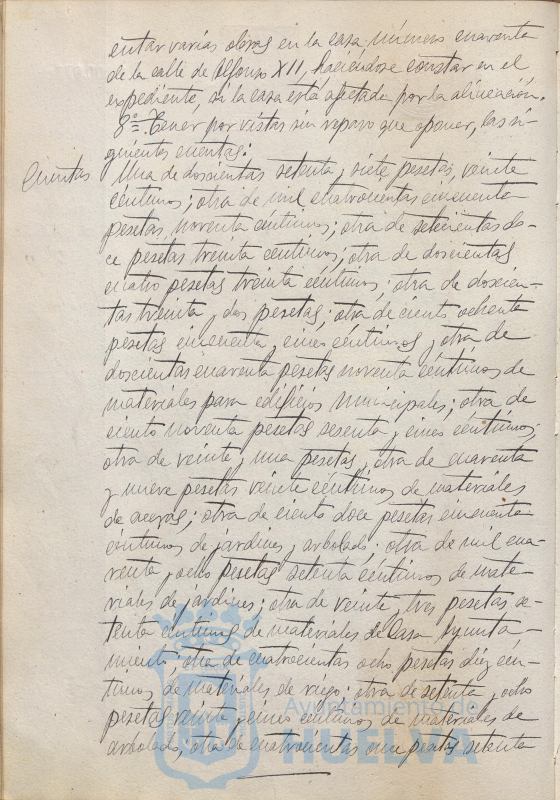 entar varias obras en la casa número cuarenta
de la calle de Alfonso XII, haciéndose constar en el
expediente, si la casa está afectada por la alineación.
8º=. Tener por vistas sin reparo que oponer, las si-
guientes cuentas:
Cuentas Una de doscientas setenta y siete pesetas, veinte
céntimos; otra de mil cuatrocientas cincuenta
pesetas, noventa céntimos; otra de setecientas do-
ce pesetas treinta céntimos; otra de doscientas
cuatro pesetas treinta céntimos; otra de doscien-
tas treinta y dos pesetas; otra de ciento ochenta
pesetas cincuenta y cinco céntimos y otra de
doscientas cuarenta pesetas noventa céntimos de
materiales para edificios municipales; otra de
ciento noventa pesetas sesenta y cinco céntimos;
otra de veinte y una pesetas, otra de cuarenta
y nueve pesetas veinte céntimos de materiales
de aceras; otra de ciento doce pesetas cincuenta
céntimos de jardines y arbolado; otra de mil cua-
renta y ocho pesetas setenta céntimos de mate-
riales de jardines; otra de veinte y tres pesetas se-
tenta céntimos de materiales de Casa Ayunta-
miento; otra de cuatrocientas ocho pesetas diez cén-
timos de materiales de riego; otra de setenta y ocho
pesetas veinte y cinco céntimos de materiales de
arbolado; otra de cuatrocientas once pesetas setenta
Ayuntamiento de
HUELVA